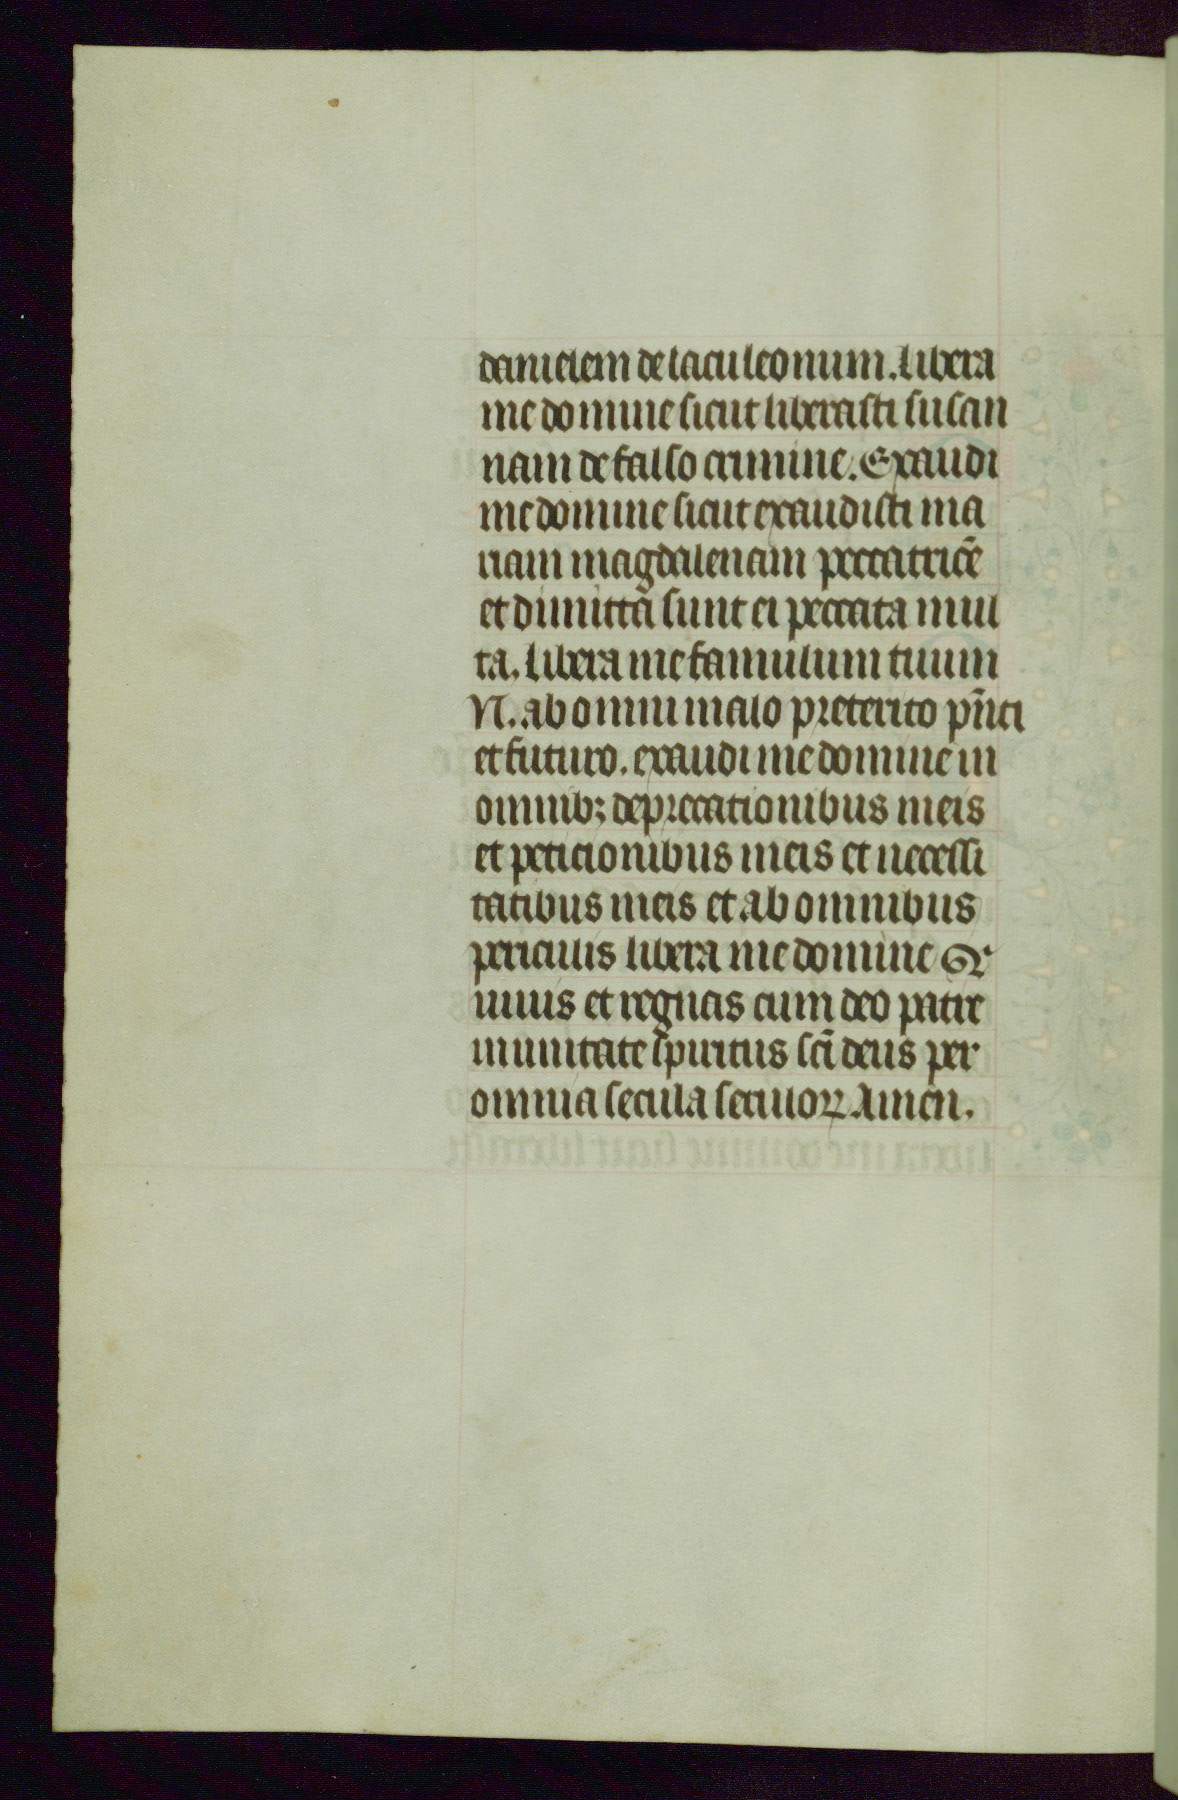 danielem de lacu leonum. Libera
me domine sicut liberasti susan
nam de falso crimine. Exaudi
me domine sicut exaudisti ma
riam magdalenam peccatricē
et dimittā sunt ei peccata mul
ta. Libera me famulum tuum
N. ab omni malo preterito pn̄ti
et futuro. exaudi me domine in
omnibꝫ deprecationibus meis
et peticionibus meis et necessi
tatibus meis et ab omnibus
periculis libera me domine Qͥ
uiuis et regnas cum deo patre
in unitate spiritus sc̄i deus per
omnia secula seculoꝝ Amen.